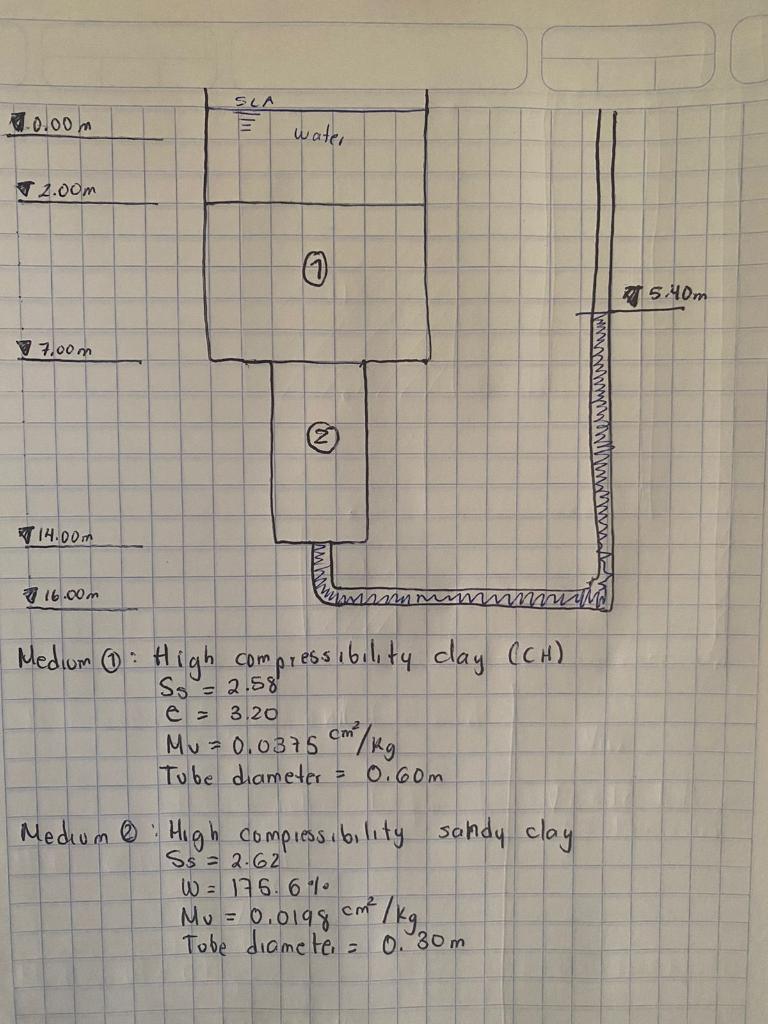 SLA
▼ 0.00 m
water
▼ 2.00 m
①
▼ 5.40 m
▼ 7.00 m
②
▼ 14.00 m
▼ 16.00 m
Medium ①: High compressibility clay (CH)
Ss = 2.58
e = 3.20
Mv = 0.0375 cm²/kg
Tube diameter = 0.60 m
Medium ②: High compressibility sandy clay
Ss = 2.62
W = 176.6 %
Mv = 0.0198 cm²/kg
Tube diameter = 0.30 m